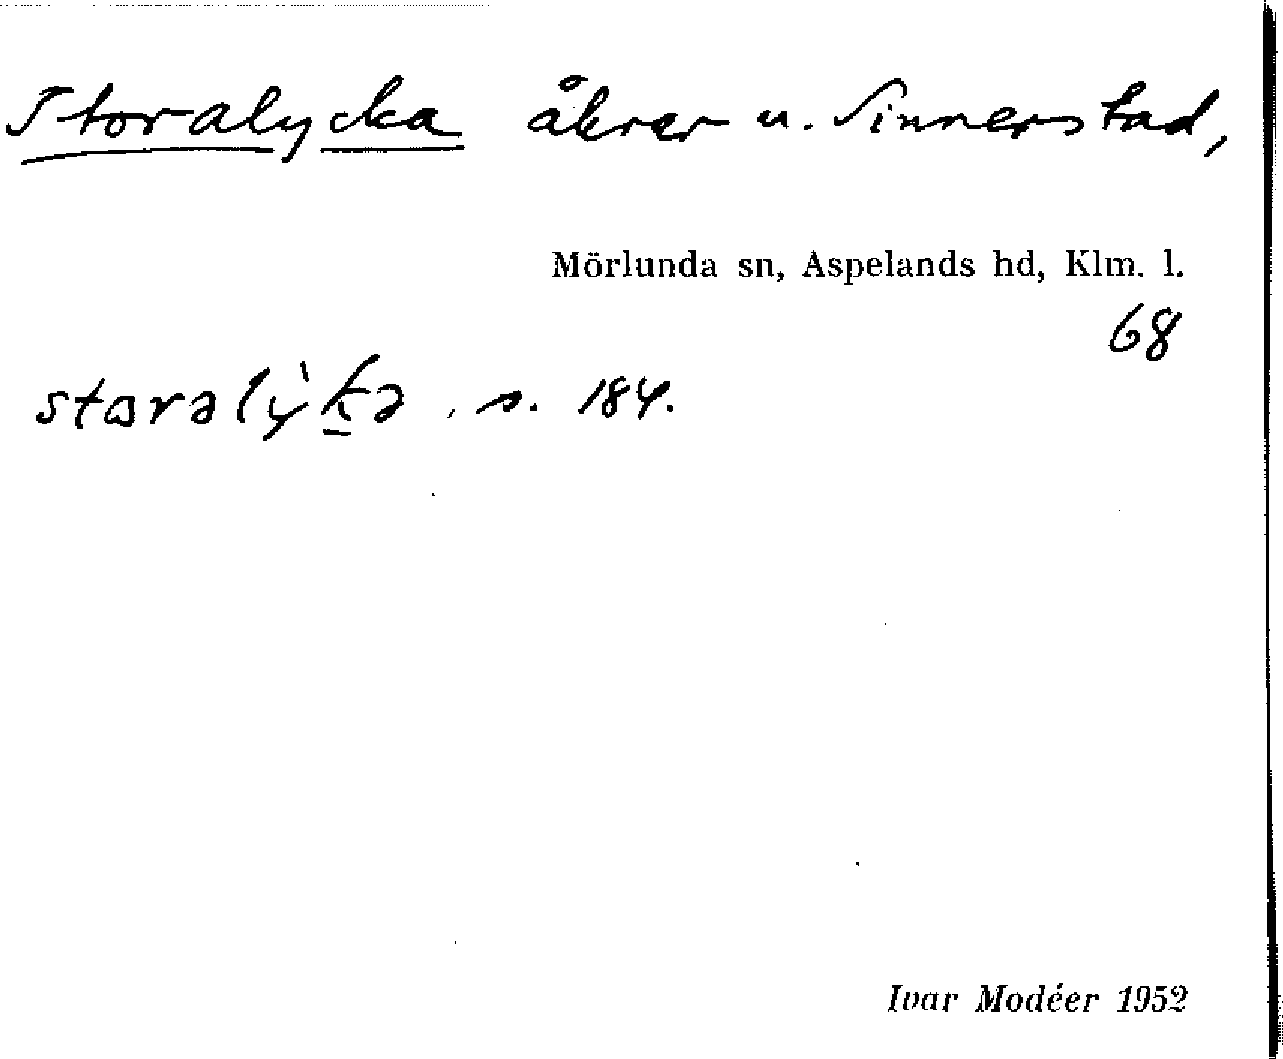 Storalycka åkrar u. Sinnerstad,
Mörlunda sn, Aspelands hd, Klm. l.
68
storalỳk̲a, s. 184.
Ivar Modéer 1952